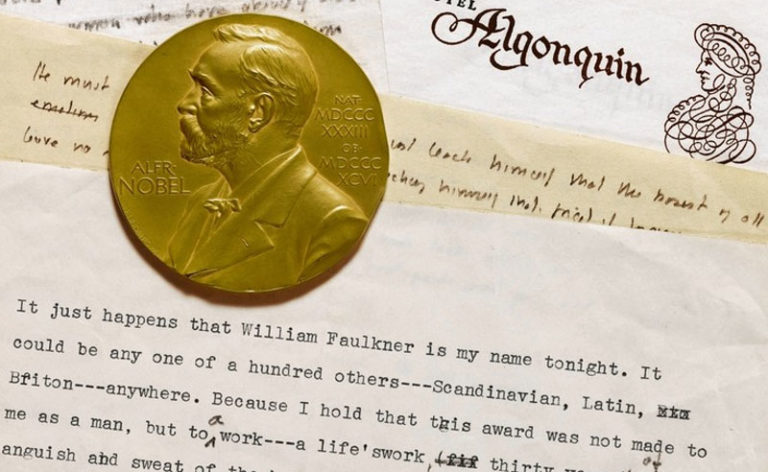 women who have
HOTEL
Algonquin
He must
emotions
leave no
just teach himself that the basest of all
teaching himself that
ALFR·
NOBEL
NAT·
MDCCC
XXXIII
OB·
MDCCC
XCVI
It just happens that William Faulkner is my name tonight. It
could be any one of a hundred others---Scandinavian, Latin,
Briton---anywhere. Because I hold that this award was not made to
me as a man, but to a work---a life'swork, thirty
anguish and sweat of the